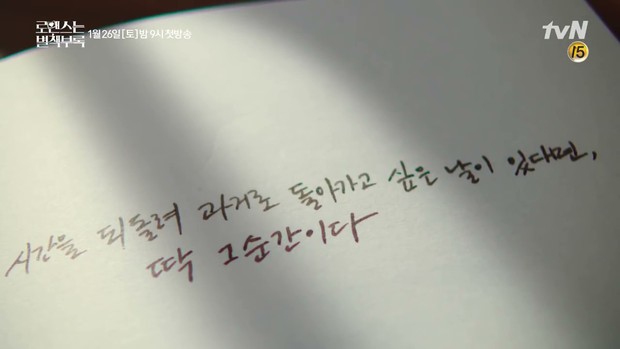 로맨스는
별책부록
1월 26일 [토] 밤 9시 첫방송
tvN
15
시간을 되돌려 과거로 돌아가고 싶은 날이 있다면,
딱 그 순간이다